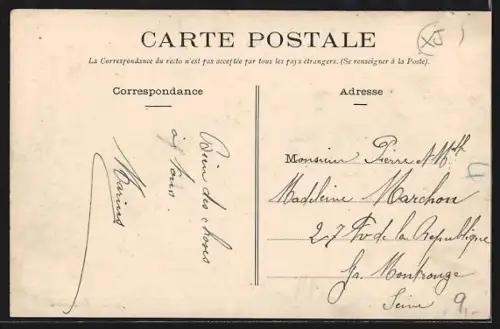 CARTE POSTALE
La Correspondance du recto n'est pas acceptée par tous les pays étrangers. (Se renseigner à la Poste).
Correspondance
Bien des choses
à tous.
Marius
Adresse
Monsieur Pierre et Mlle
Madeleine Marchon
27 Av de la Republique
Gr. Montrouge
Seine
9,-